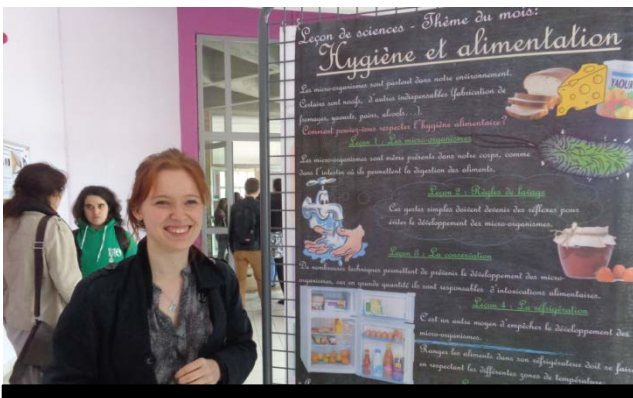 Leçon de sciences - Thème du mois:
Hygiène et alimentation
Les micro-organismes sont partout dans notre environnement.
Certains sont nocifs, d'autres indispensables (fabrication de
fromages, yaourts, pains, alcools...)
Comment pouvez-vous respecter l'hygiène alimentaire?
Leçon 1 : Les micro-organismes
Les micro-organismes sont même présents dans notre corps, comme
dans l'intestin où ils permettent la digestion des aliments.
Leçon 2 : Règles de lavage
Ces gestes simples doivent devenir des réflexes pour
éviter le développement des micro-organismes.
Leçon 3 : La conservation
De nombreuses techniques permettent de prévenir le développement des micro-
organismes, car en grande quantité ils sont responsables d'intoxications alimentaires.
Leçon 4 : La réfrigération
C'est un autre moyen d'empêcher le développement des
micro-organismes.
Ranger les aliments dans son réfrigérateur doit se faire
en respectant les différentes zones de température.
YAOUR